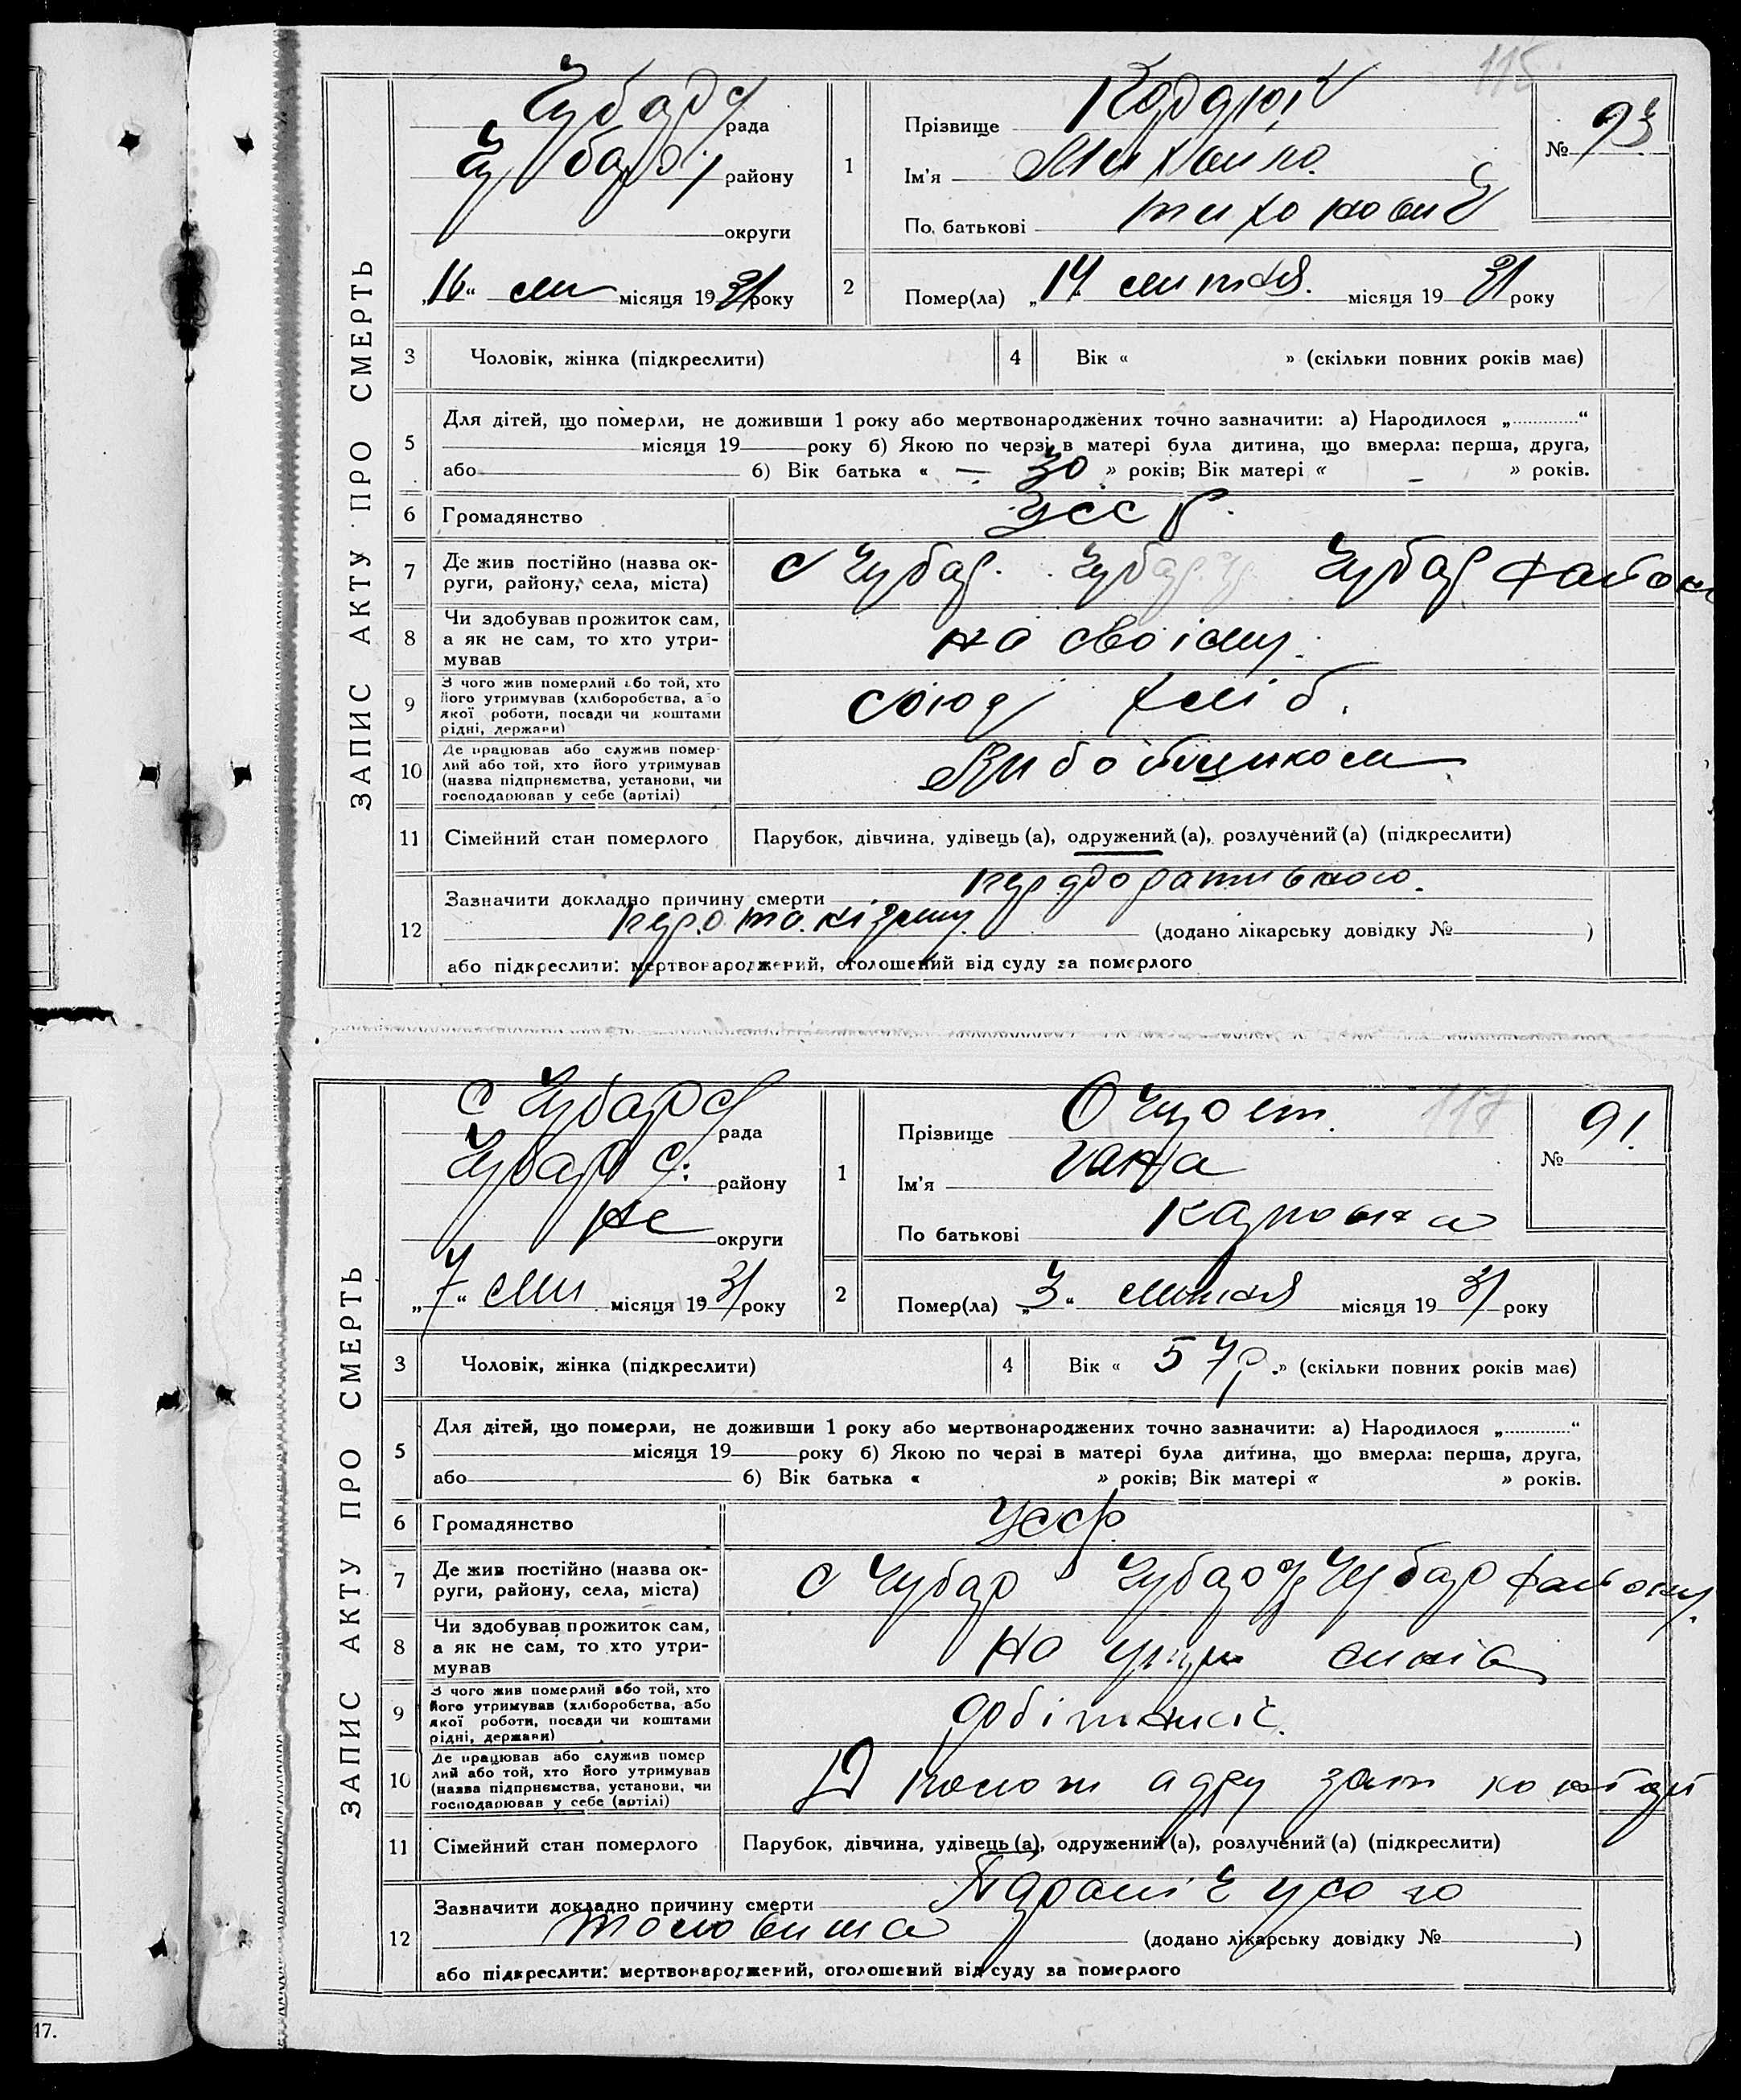 115
ЗАПИС АКТУ ПРО СМЕРТЬ
Чубар с/рада
Чубар району
округи
„16“ лип місяця 1931 року
1
Прізвище
Ім'я Михайло.
По батькові Тихонович
№ 93
2
Помер(ла) „14“ липня. місяця 1931 року
3 Чоловік, жінка (підкреслити)
4 Вік « » (скільки повних років має)
5 Для дітей, що померли, не доживши 1 року або мертвонароджених точно зазначити: а) Народилося „ “
місяця 19 року б) Якою по черзі в матері була дитина, що вмерла: перша, друга,
або б) Вік батька « — 30 » років; Вік матері « – » років.
6 Громадянство УССР.
7 Де жив постійно (назва ок-
руги, району, села, міста) с Чубар. Чубар. Чубар
8 Чи здобував прожиток сам,
а як не сам, то хто утри-
мував на своіму.
9 З чого жив померлий або той, хто
його утримував (хліборобства, або
якої роботи, посади чи коштами
рідні, держави) хліб.
10 Де працював або служив помер-
лий або той, хто його утримував
(назва підприємства, установи, чи
господарював у себе (артілі)
11 Сімейний стан померлого Парубок, дівчина, удівець (а), одружений (а), розлучений (а) (підкреслити)
12 Зазначити докладно причину смерти
(додано лікарську довідку № )
або підкреслити: мертвонароджений, оголошений від суду за померлого
117
ЗАПИС АКТУ ПРО СМЕРТЬ
С Чубар с/рада
Чубар с. району
не округи
„7“ лип місяця 1931 року
1
Прізвище
Ім'я Гана
По батькові Карповна
№ 91.
2
Помер(ла) „3“ липня місяця 1931 року
3 Чоловік, жінка (підкреслити)
4 Вік « 57 р. » (скільки повних років має)
5 Для дітей, що померли, не доживши 1 року або мертвонароджених точно зазначити: а) Народилося „ “
місяця 19 року б) Якою по черзі в матері була дитина, що вмерла: перша, друга,
або б) Вік батька « » років; Вік матері « » років.
6 Громадянство УССР
7 Де жив постійно (назва ок-
руги, району, села, міста) с Чубар Чубар Чубар
8 Чи здобував прожиток сам,
а як не сам, то хто утри-
мував на синів
9 З чого жив померлий або той, хто
його утримував (хліборобства, або
якої роботи, посади чи коштами
рідні, держави) робітник.
10 Де працював або служив помер
лий або той, хто його утримував
(назва підприємства, установи, чи
господарював у себе (артілі)
11 Сімейний стан померлого Парубок, дівчина, удівець (а), одружений (а), розлучений (а) (підкреслити)
12 Зазначити докладно причину смерти
(додано лікарську довідку № )
або підкреслити: мертвонароджений, оголошений від суду за померлого
17.